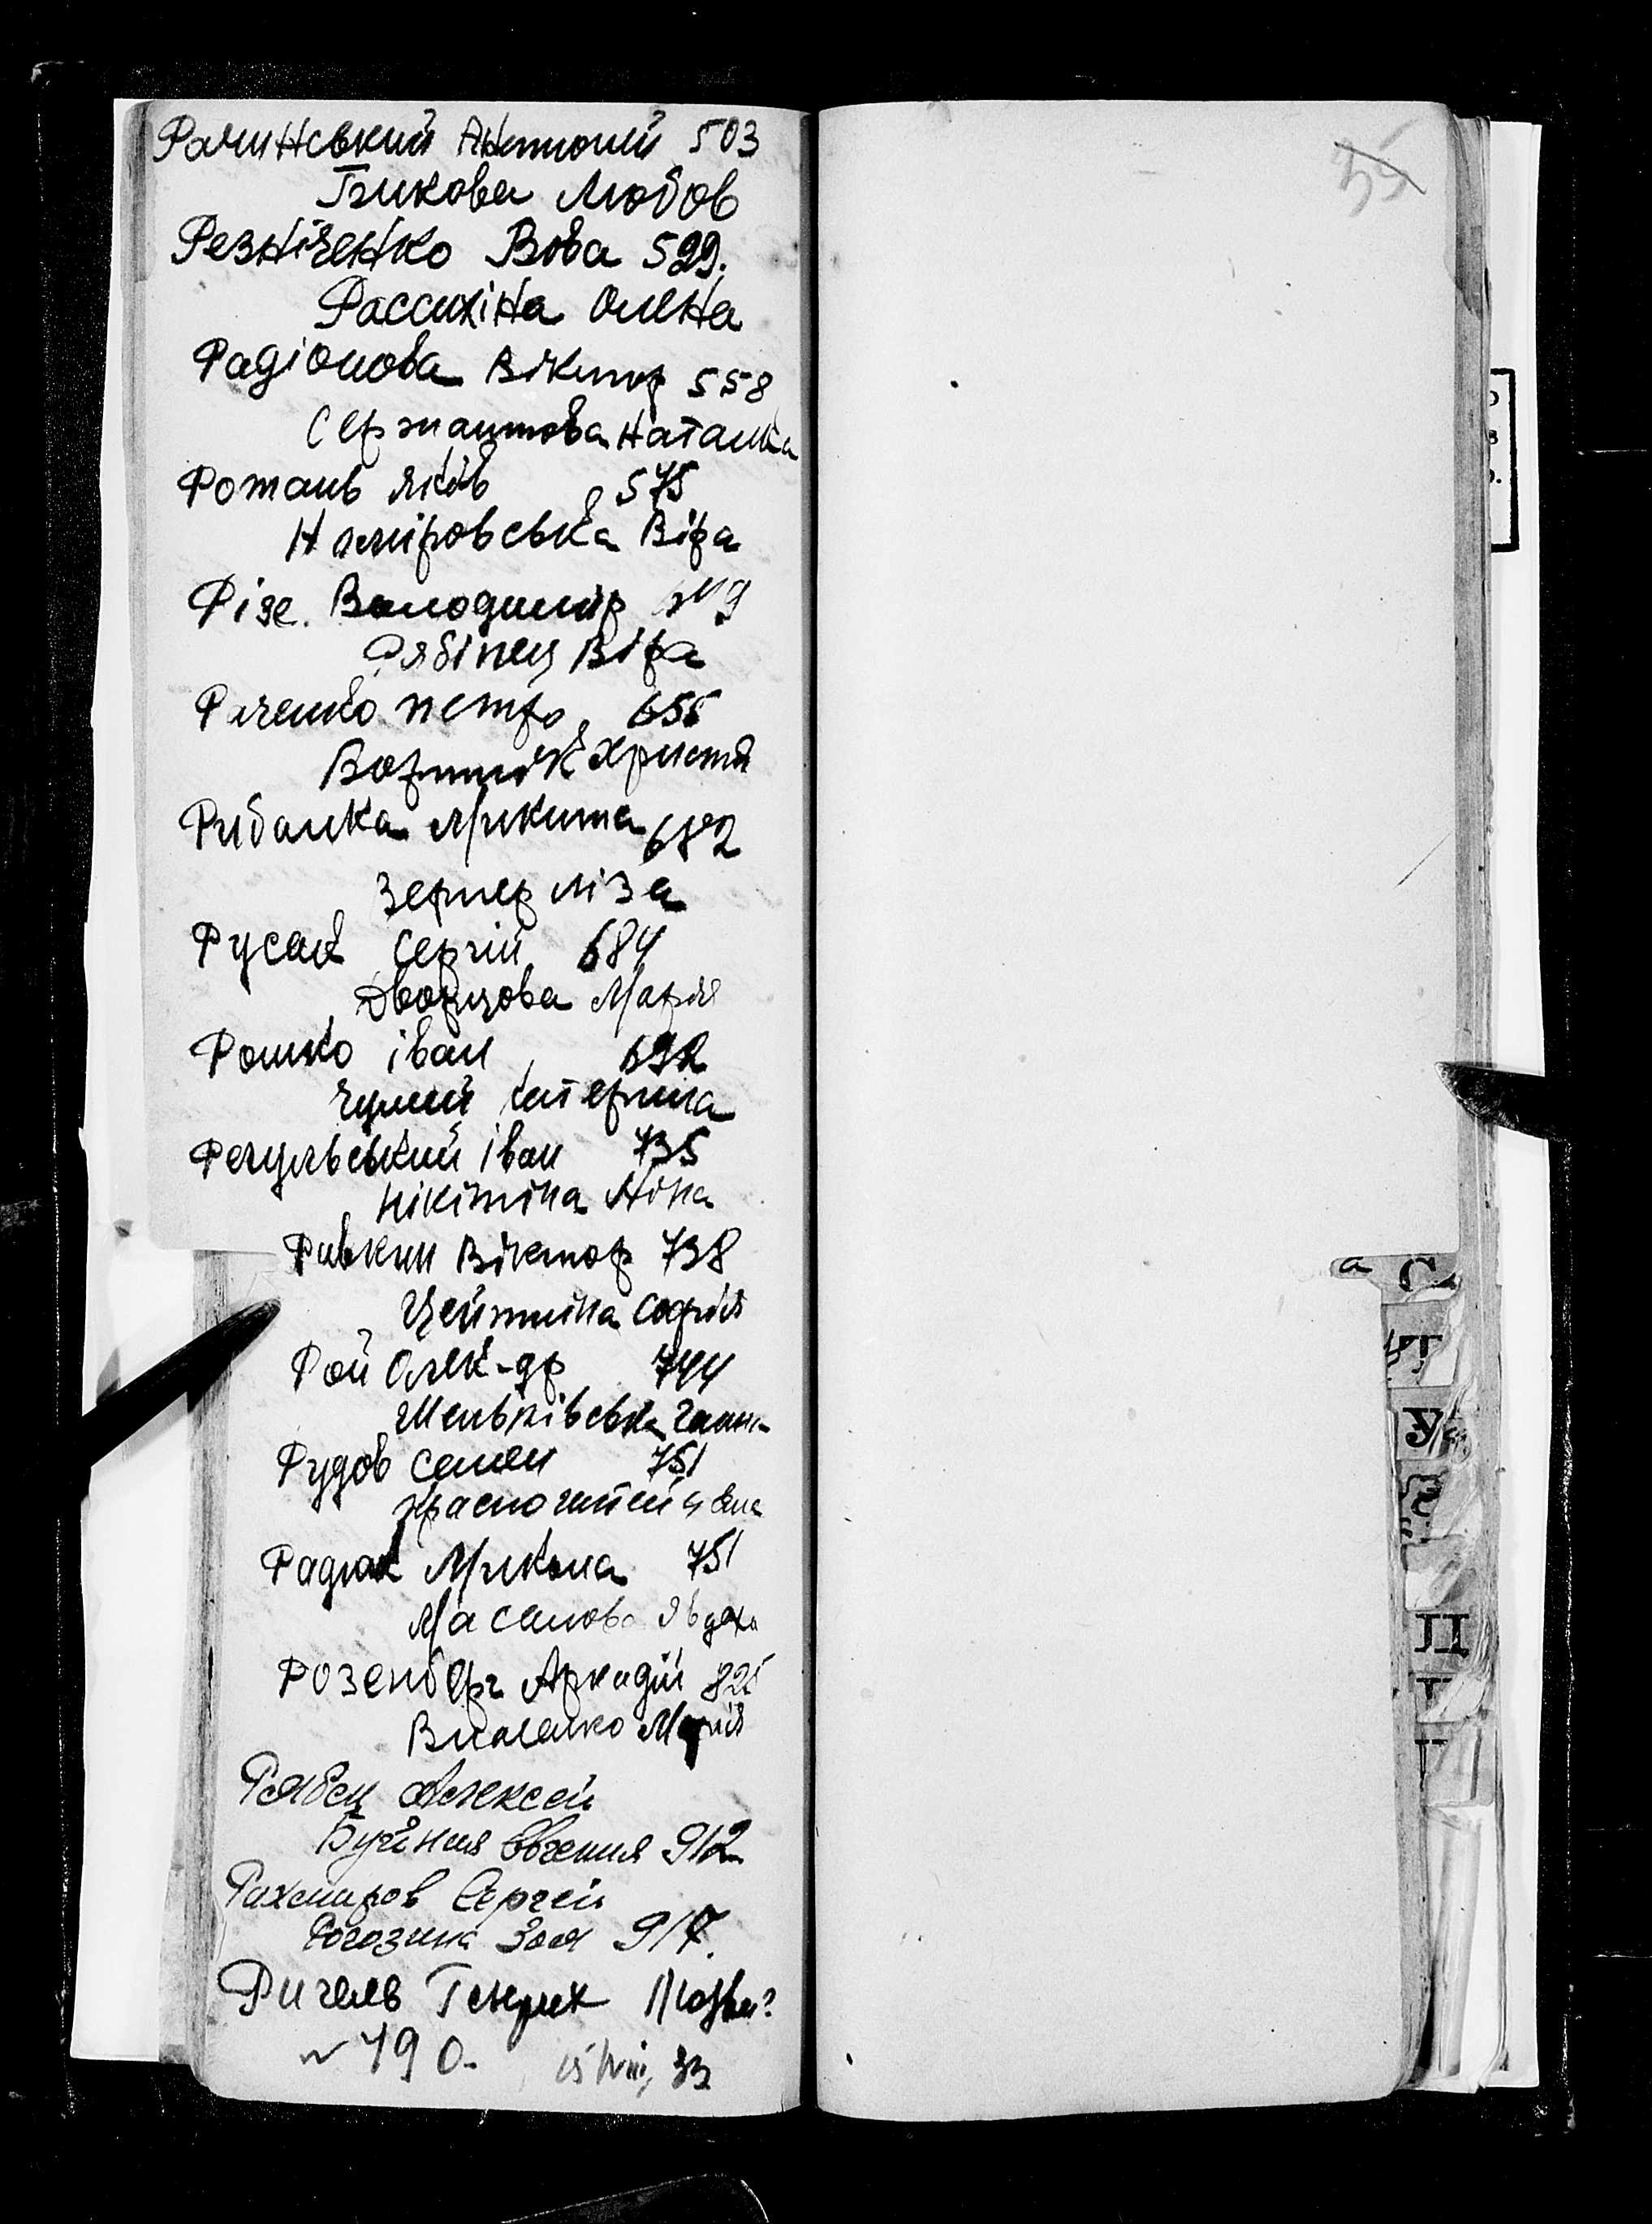 Рачинський Антоній 503
Бикова Любов
Резніченко Вова 529.
Рассихіна Олена
Радіонова Віктор 558
Сержантова Наталка
Ротань Яків 575
Немировська Віра
Різе. Володимир
Рябінец Віра
Раченко Петро 655
Вортник Христя
Рибалка Микита 682
Зернер Ліза
Русак Сергій 684
Дворцова Марія
Рошко Іван 692
Чумий Катерина
Регульський Іван 735
Нікітіна Ніна
Ривкин Віктор 738
Цейтлина Софія
Рой Олек-др 744
Меньківська Ганна
Рудов Семен 751
Радюк Микола 751
Масалова Явдоха
Розенберг Аркадій 825
Марія
Рябец Алексей
Евгения 912
Рахмиров Сергей
Рогозина Зоя 917.
Ригель Генрих
490.
33
55
а С
Т
У